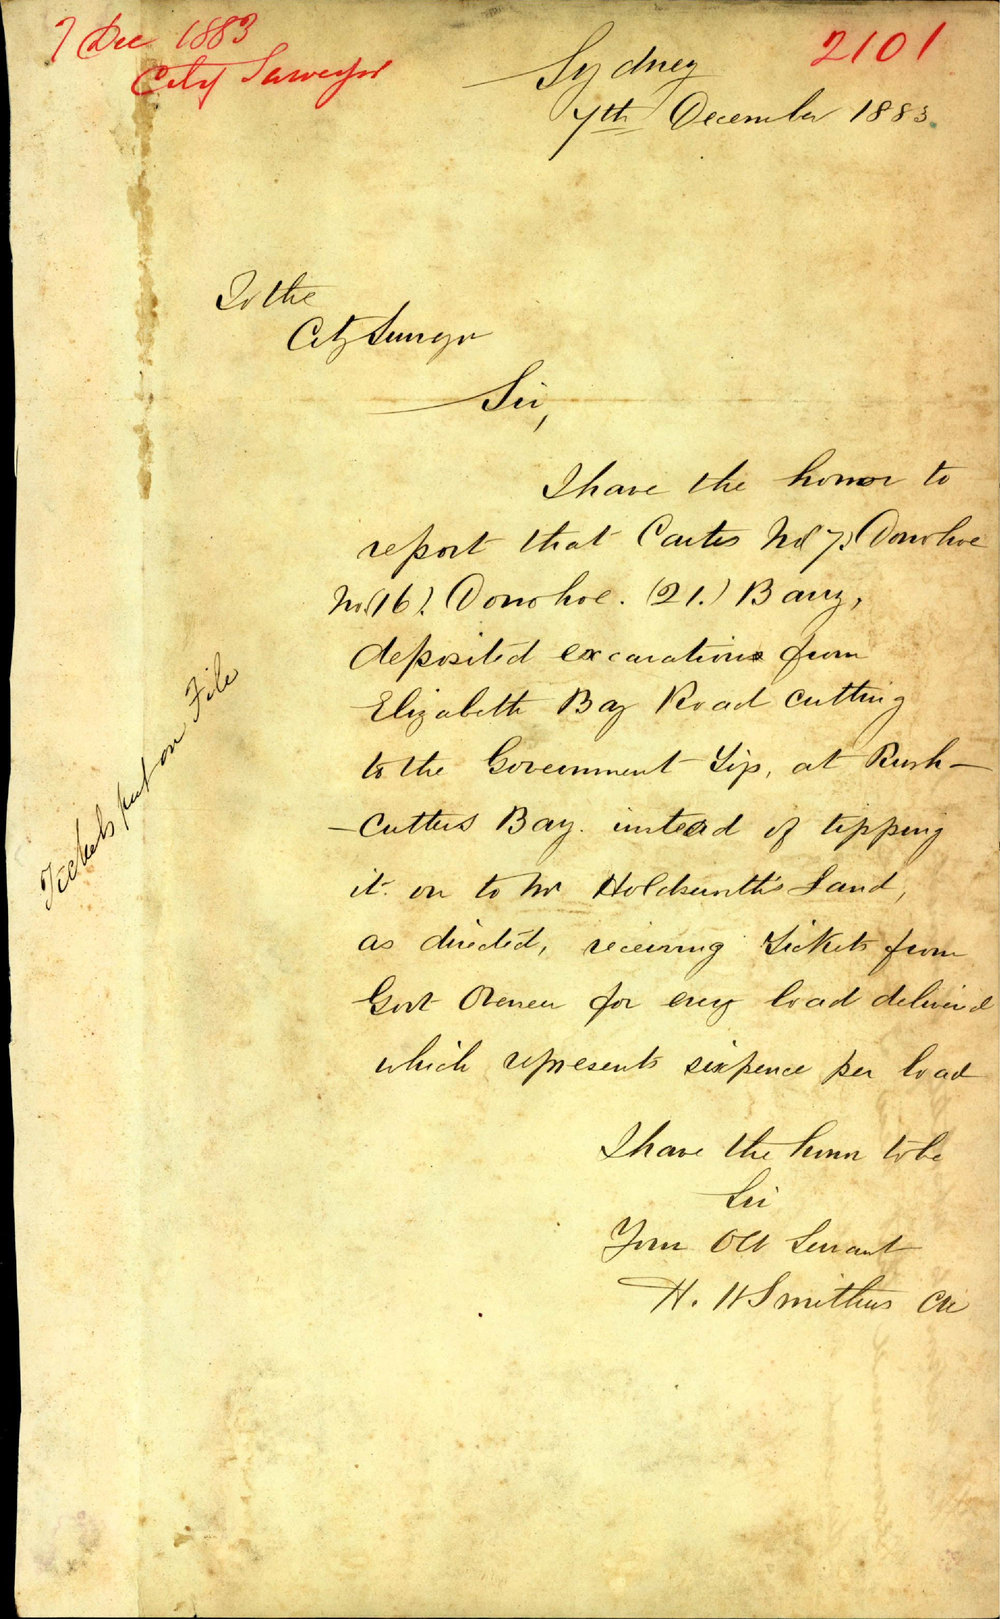 7 Dec 1883
City Surveyor
2101
Sydney
7th December 1883.
To the
City Surveyor
Sir,
I have the honor to
report that Carters No (7.) Donohoe
No. (16). Donohoe. (21.) Barry,
deposited excavations from
Elizabeth Bay Road cutting
to the Government Tip, at Rush-
-cutters Bay. instead of tipping
it on to Mr Holdsworth's Land,
as directed, receiving Tickets from
Govt for every load delivered
which represents sixpence per load
I have the honor to be
Sir
Your Obt Servant
H. H Smithers
Tickets put on File